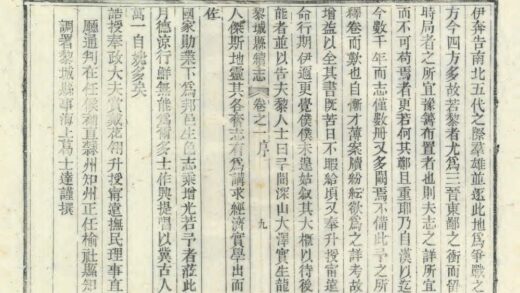 伊奔告南北五代之際羣雄並逐此地爲爭戰
方今四方多故若黎者尤爲三晉東鄙之衝而留
時局者之所宜豫籌布置者也則夫志之詳所宜
而不可苟焉者更若何其鄭且重耶乃自漢以迄
今數千年而志僅數冊又多闕焉不備此予之所
釋卷而歎也自慚才薄案牘紛紜欲爲之詳考故
增益以全其書既苦日不暇給頃又奉升授甯遠
命行期伊邇更覺僕僕未遑姑叙其大概以待後
能者並以告夫黎人士曰予聞深山大澤實生龍
黎城縣續志 卷之一 序 九
人傑斯地靈其各奮志有爲講求經濟實學出而
佐
國家勛業下爲邦邑生色志乘增光若予者蒞此
月德涼行鮮無能爲爾多士作興提倡以冀古人
萬一自媿多矣
誥授奉政大夫賞戴花翎升授甯遠撫民理事直
廳通判在任候補直隸州知州正任榆社縣知
調署黎城縣事海上葛士達謹撰